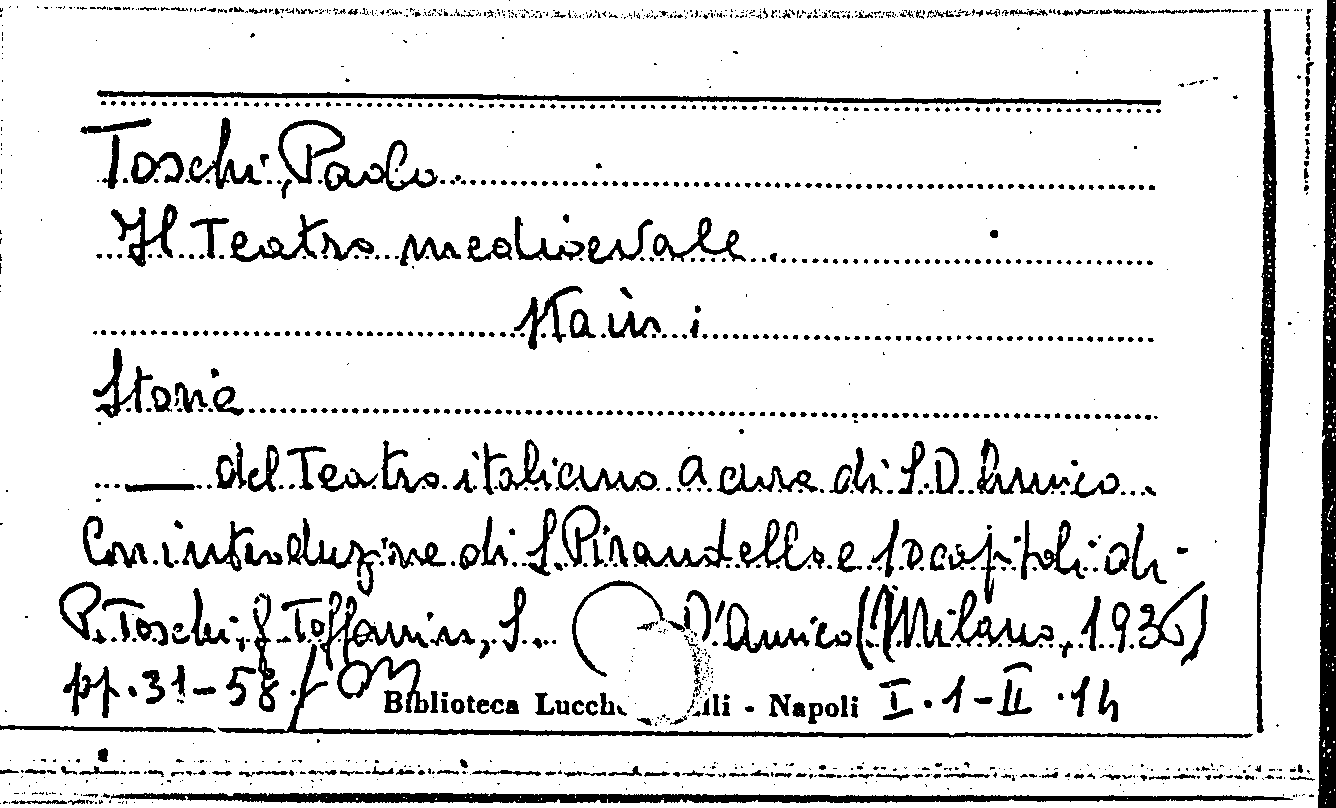 Toschi, Paolo.
Il Teatro medioevale.
Sta in:
Storia
— del Teatro italiano a cura di S. D'Amico.
Con introduzione di L. Pirandello e 10 capitoli di
P. Toschi, G. Toffanin, S. D'Amico (Milano, 1936)
pp. 31-58
Biblioteca Lucche lli - Napoli I. 1-II. 14